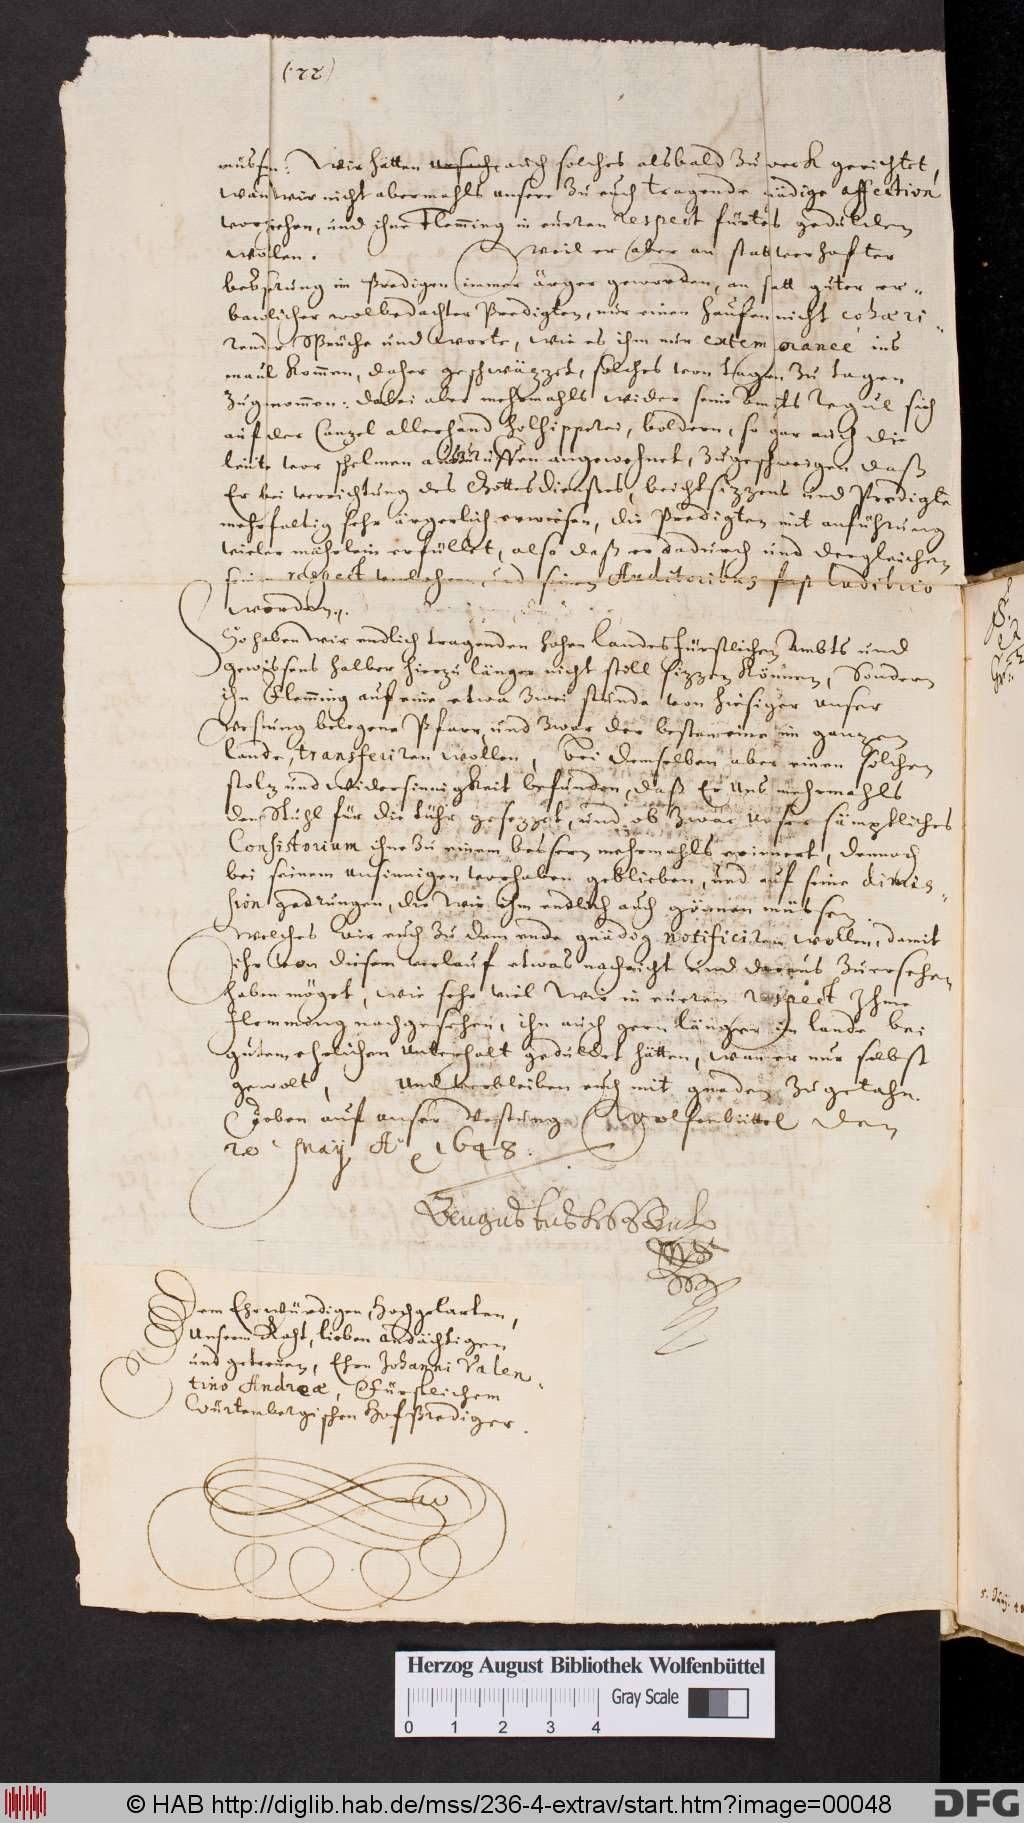 (22)
müßen: Wir hätten ursach auch solches alsbald zu werk gerichtet,
wan wir nicht abermahls unsere zu euch tragende gnädige affection
vorziehen, und ihne Flemming in eueren respect fürters gedulden
wollen. Weil er aber an statt verhofter
beßerung im Predigen immer ärger geworden, an statt guter er-
baulicher wolbedachter Predigten, nur einen hauffen nicht cohaeri-
render Sprüche und worte, wie es ihm nur extemporanee ins
maul kommen, daher geschwäzzet, solches von tagen zu tagen
zugenommen: dabei aber mehrmahls wider seine Amts Regul sich
auf der Canzel allerhand holhipperei, boldern, so gar auch die
leute vor schelmen auszuruffen angewehnet, zugeschweigen daß
Er bei verrichtung des Gottesdienstes, beichtsizzens und Predigte
mehrfaltig sehr ärgerlich erwiesen, die Predigten mit anführung
vieler mährlein erfüllet, also daß er dadurch und dergleichen
seinen respect verlohren, und seinen Auditoribus fast ludibrio
worden.
So haben wir endlich tragenden hohen Landesfürstlichen Ambts und
gewissens halber hierzu länger nicht still sizzen können, Sondern
ihn Flemming auf eine etwa zwei stunde von hiesiger unser
Vestung belegene Pfarr, und zwar der besten eine im ganzen
lande, transferiren wollen, bei demselben aber einen solchen
stolz und Widersinnigkeit befunden, daß Er Uns mehrmahls
den Stuhl für die tühr gesezzet, und ob zwar Unser sämptliches
Consistorium ihne zu einem bessern mehrmahls erinnert, dennoch
bei seinem unsinnigen vorhaben geblieben, und auf seine dimis-
sion gedrungen, die wir ihm endlich auch gönnen müssen.
Welches Wir euch zu dem ende gnädig notificiren wollen, damit
ihr von diesem verlauf etwas nachricht und daraus zuersehen
haben möget, wie sehr viel Wir in eueren respect Ihme
Flemming nachgesehen, ihn auch gern länger im lande bei
gutem ehrlichen unterhalt geduldet hätten, wan er nur selbst
gewolt, Und verbleiben euch mit gnaden zugetahn.
Geben auf unser Vestung Wolfenbüttel den
20 Maij Aº 1648.
Augustus HzBuL
Dem Ehrwürdigen, Hochgelarten,
Unserm Raht, lieben andächtigen
und getreuen, Ehrn Johanni Valen-
tino Andreæ, Fürstlichem
Würtenbergischen Hofprediger.
5. Junij 48
Herzog August Bibliothek Wolfenbüttel
Gray Scale
0 1 2 3 4
© HAB http://diglib.hab.de/mss/236-4-extrav/start.htm?image=00048
DFG